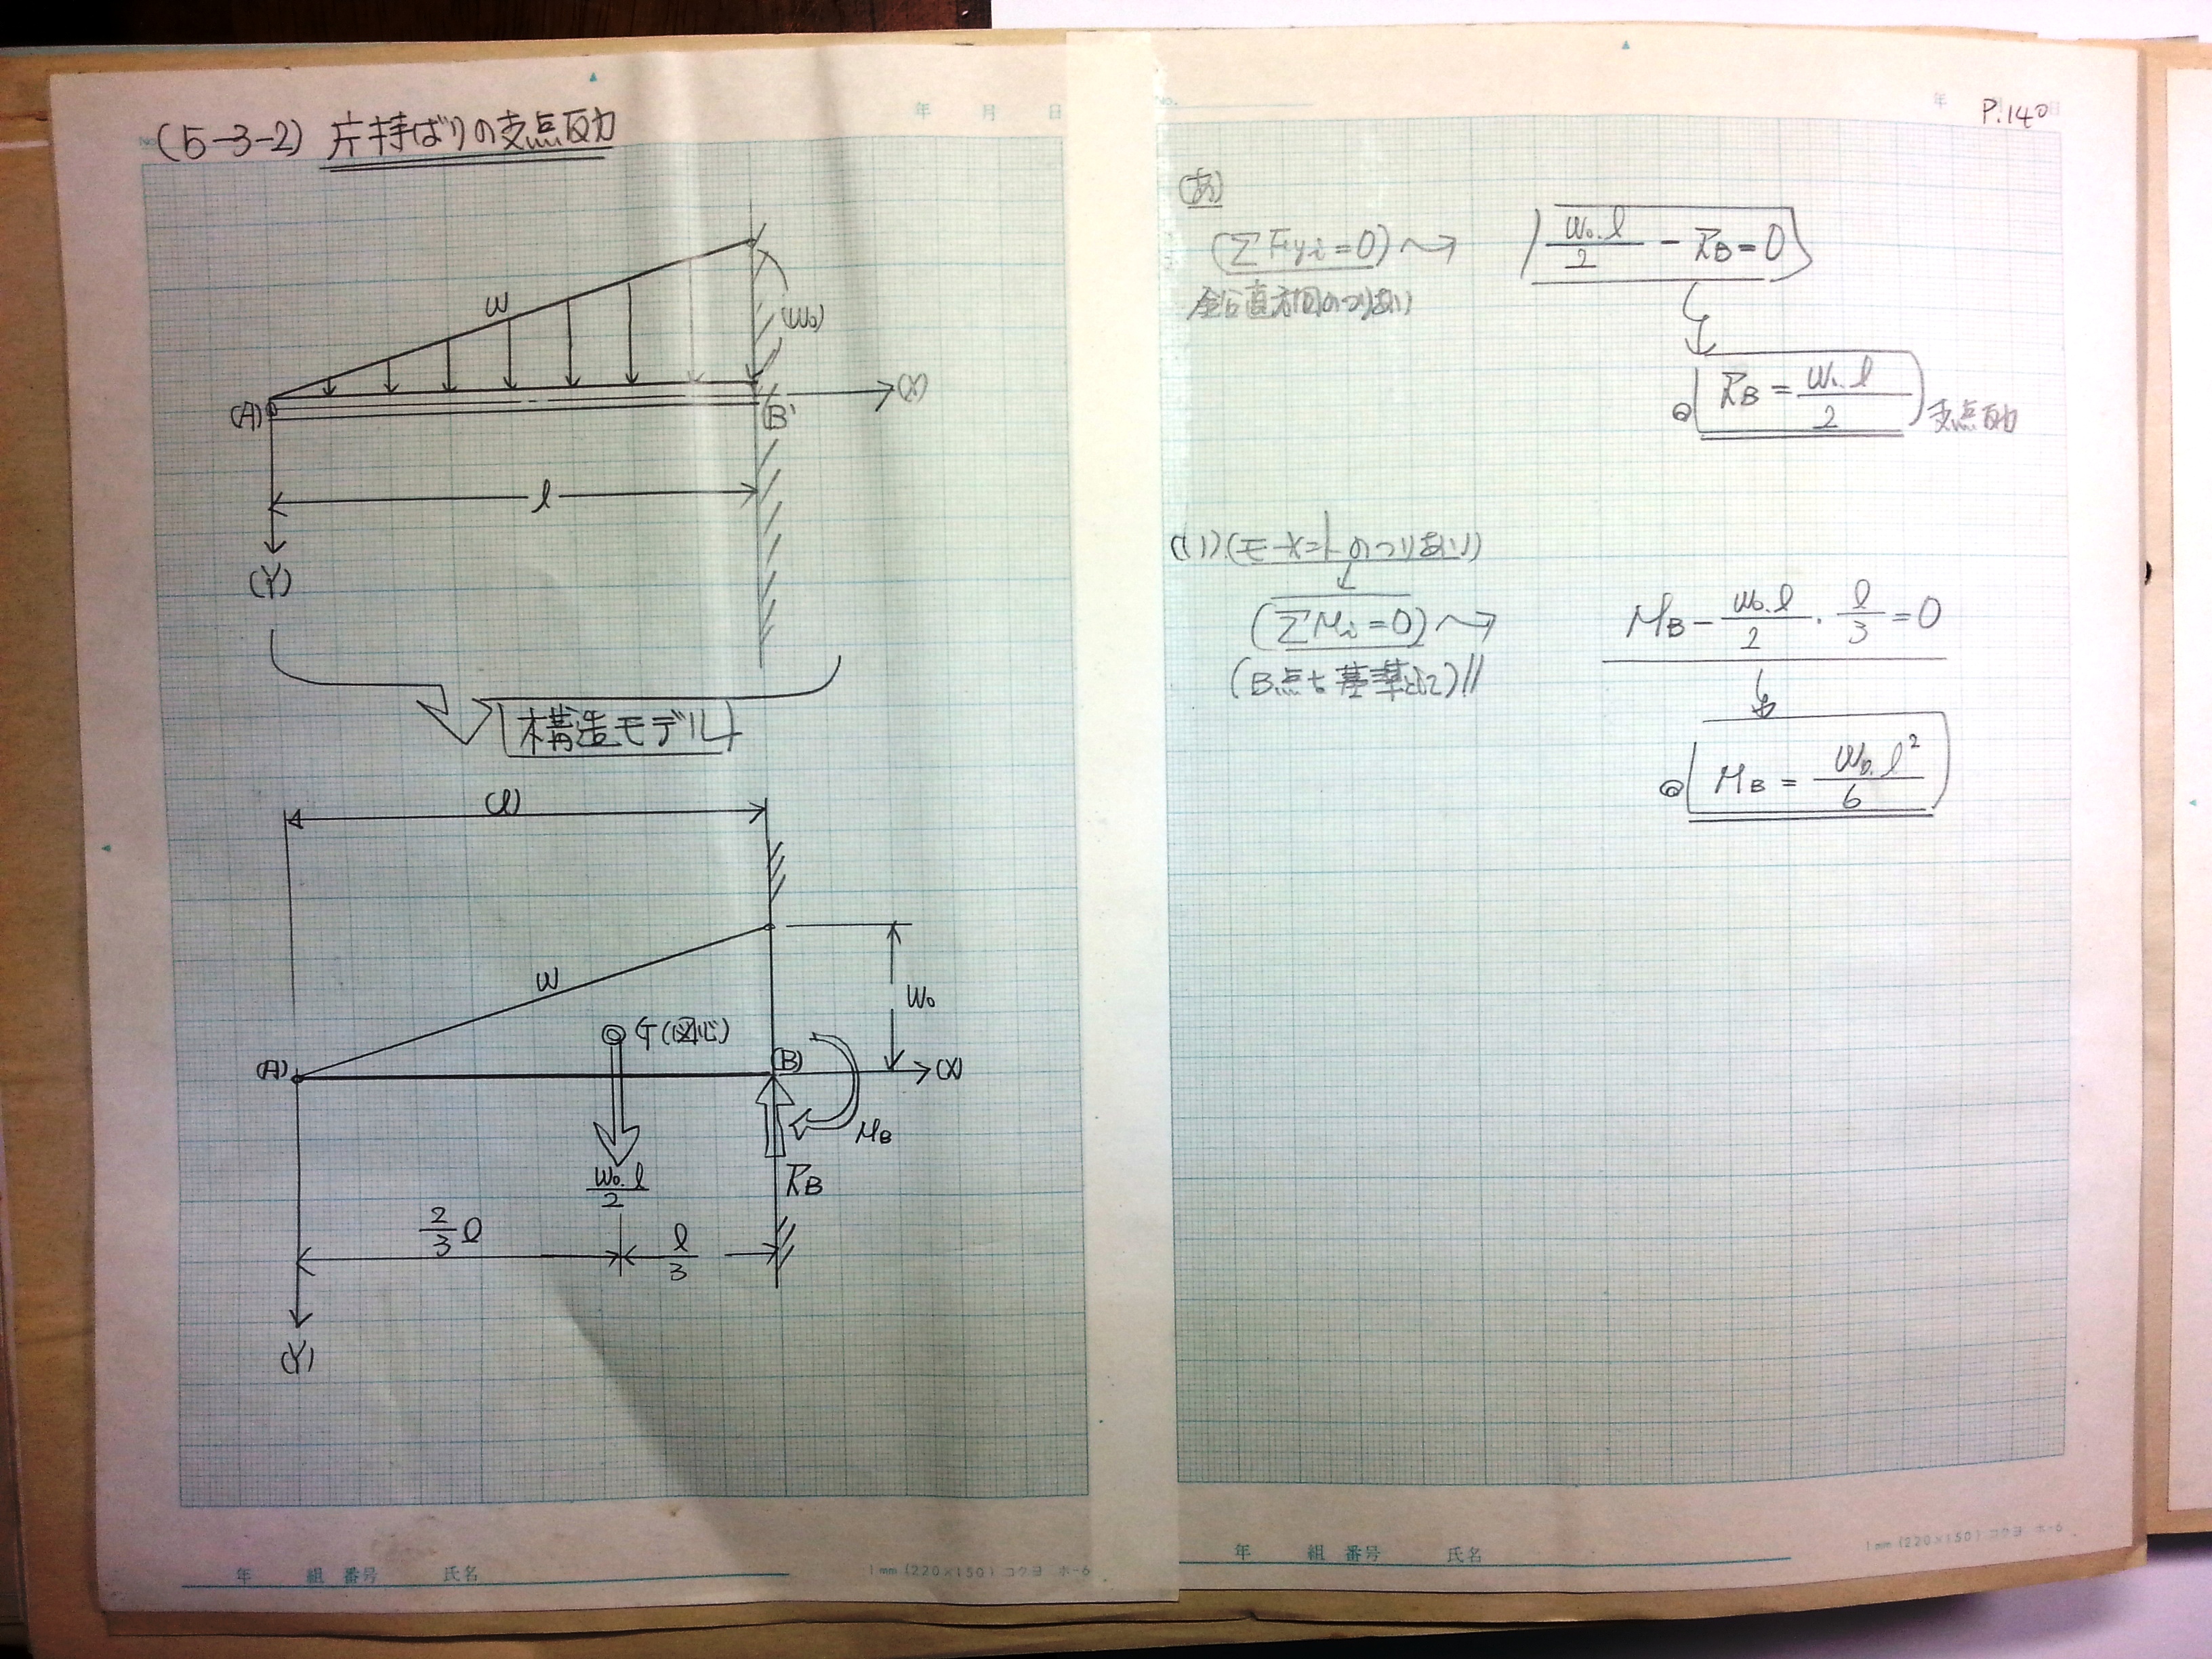 (5-3-2) 片持ばりの支点反力
年 月 日
No.
w
(W₀)
(A)
(B)
(X)
l
(Y)
構造モデル
(l)
w
W₀
G(図心)
(A)
(B)
(X)
M_B
W₀.l/2
R_B
2/3 l
l/3
(Y)
年 組 番号 氏名
1mm(220×150) コクヨ ホ-6
No.
年
P.140
(あ)
(ΣFyi=0)
W₀.l/2 - R_B=0
鉛直方向のつりあい
R_B = W₀.l/2
支点反力
(い)(モーメントのつりあい)
(ΣMi=0)
M_B - W₀.l/2 · l/3 = 0
(B点を基準として)//
M_B = W₀.l²/6
年 組 番号 氏名
1mm(220×150) コクヨ ホ-6